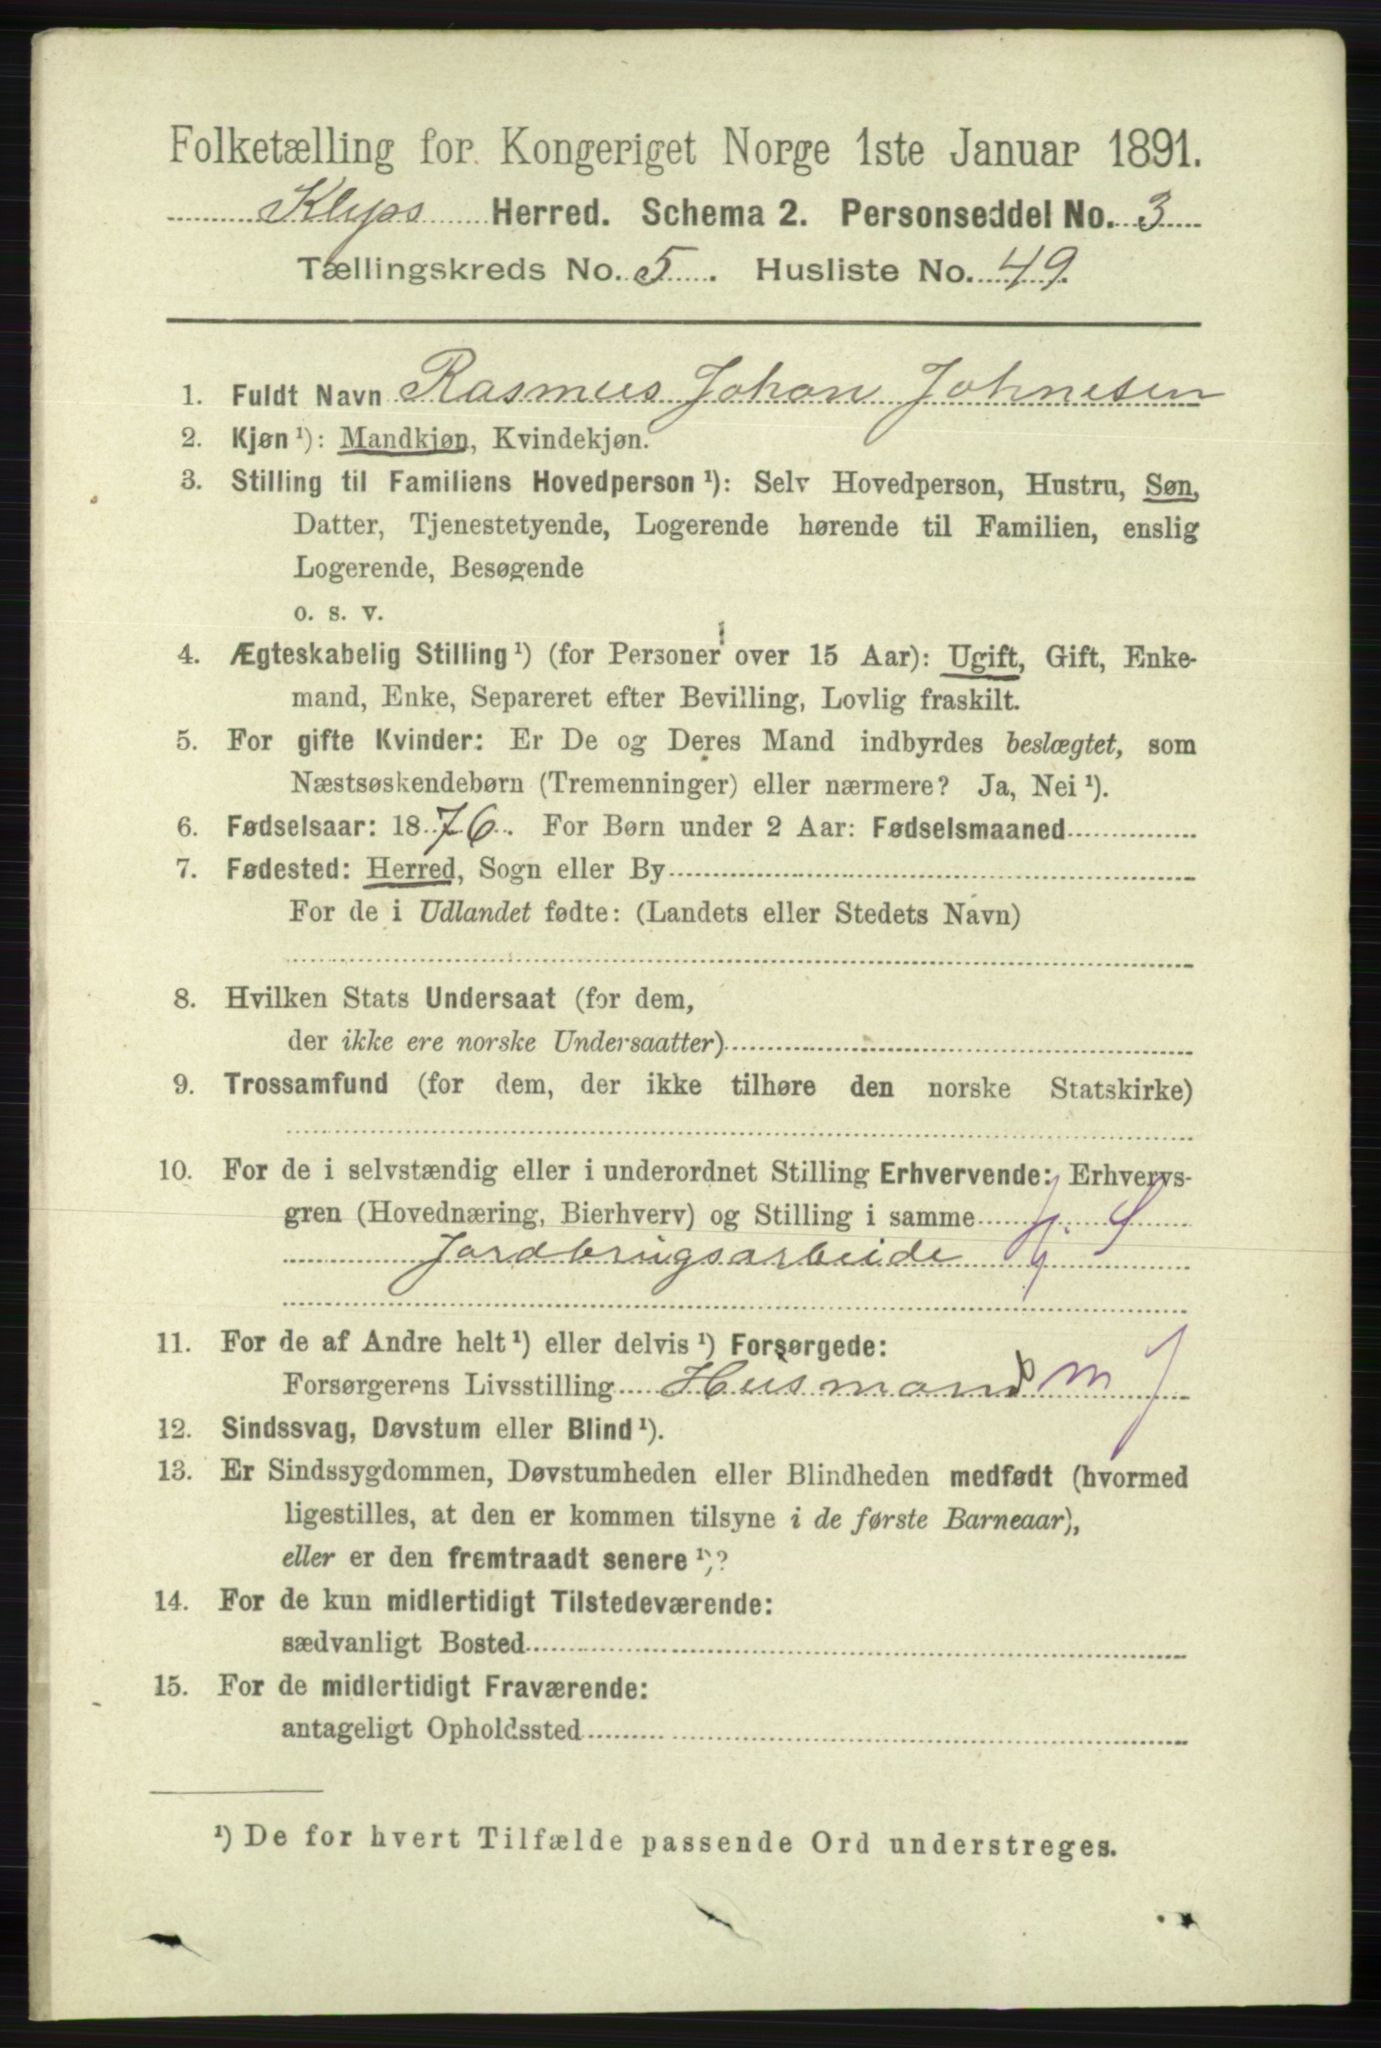 Folketælling for Kongeriget Norge 1ste Januar 1891.
Klyps Herred. Schema 2. Personseddel No. 3
Tællingskreds No. 5. Husliste No. 49.
1. Fuldt Navn Rasmus Johan Johnesen
2. Kjøn¹): Mandkjøn, Kvindekjøn.
3. Stilling til Familiens Hovedperson¹): Selv Hovedperson, Hustru, Søn,
Datter, Tjenestetyende, Logerende hørende til Familien, enslig
Logerende, Besøgende
o. s. v.
4. Ægteskabelig Stilling¹) (for Personer over 15 Aar): Ugift, Gift, Enke-
mand, Enke, Separeret efter Bevilling, Lovlig fraskilt.
5. For gifte Kvinder: Er De og Deres Mand indbyrdes beslægtet, som
Næstsøskendebørn (Tremenninger) eller nærmere? Ja, Nei¹).
6. Fødselsaar: 1876. For Børn under 2 Aar: Fødselsmaaned
7. Fødested: Herred, Sogn eller By
For de i Udlandet fødte: (Landets eller Stedets Navn)
8. Hvilken Stats Undersaat (for dem,
der ikke ere norske Undersaatter)
9. Trossamfund (for dem, der ikke tilhøre den norske Statskirke)
10. For de i selvstændig eller i underordnet Stilling Erhvervende: Erhvervs-
gren (Hovednæring, Bierhverv) og Stilling i samme
Jordbrugsarbeide
11. For de af Andre helt¹) eller delvis¹) Forsørgede:
Forsørgerens Livsstilling Husmand m J
12. Sindssvag, Døvstum eller Blind¹).
13. Er Sindssygdommen, Døvstumheden eller Blindheden medfødt (hvormed
ligestilles, at den er kommen tilsyne i de første Barneaar),
eller er den fremtraadt senere¹)?
14. For de kun midlertidigt Tilstedeværende:
sædvanligt Bosted
15. For de midlertidigt Fraværende:
antageligt Opholdssted
¹) De for hvert Tilfælde passende Ord understreges.